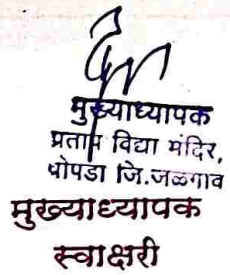 मुख्याध्यापक
प्रताप विद्या मंदिर,
चोपडा जि.जळगाव
मुख्याध्यापक
स्वाक्षरी